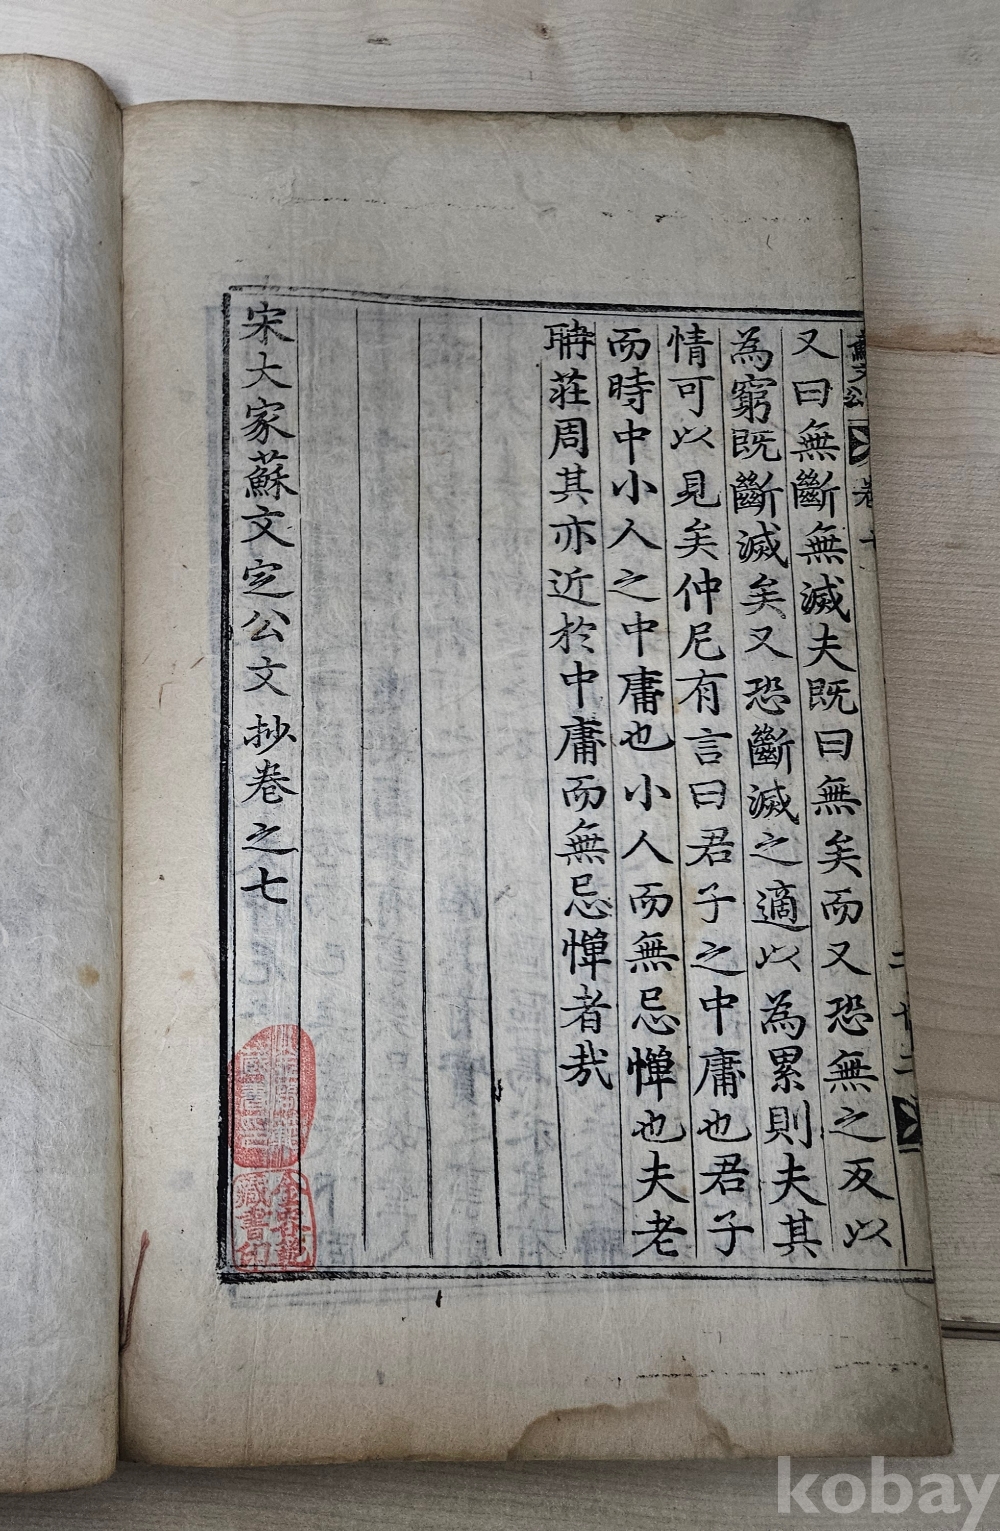 又曰無斷無滅夫既曰無矣而又恐無之反以
為窮既斷滅矣又恐斷滅之適以為累則夫其
情可以見矣仲尼有言曰君子之中庸也君子
而時中小人之中庸也小人而無忌憚也夫老
聃莊周其亦近於中庸而無忌憚者哉
宋大家蘇文定公文抄卷之七
藏書印
kobay